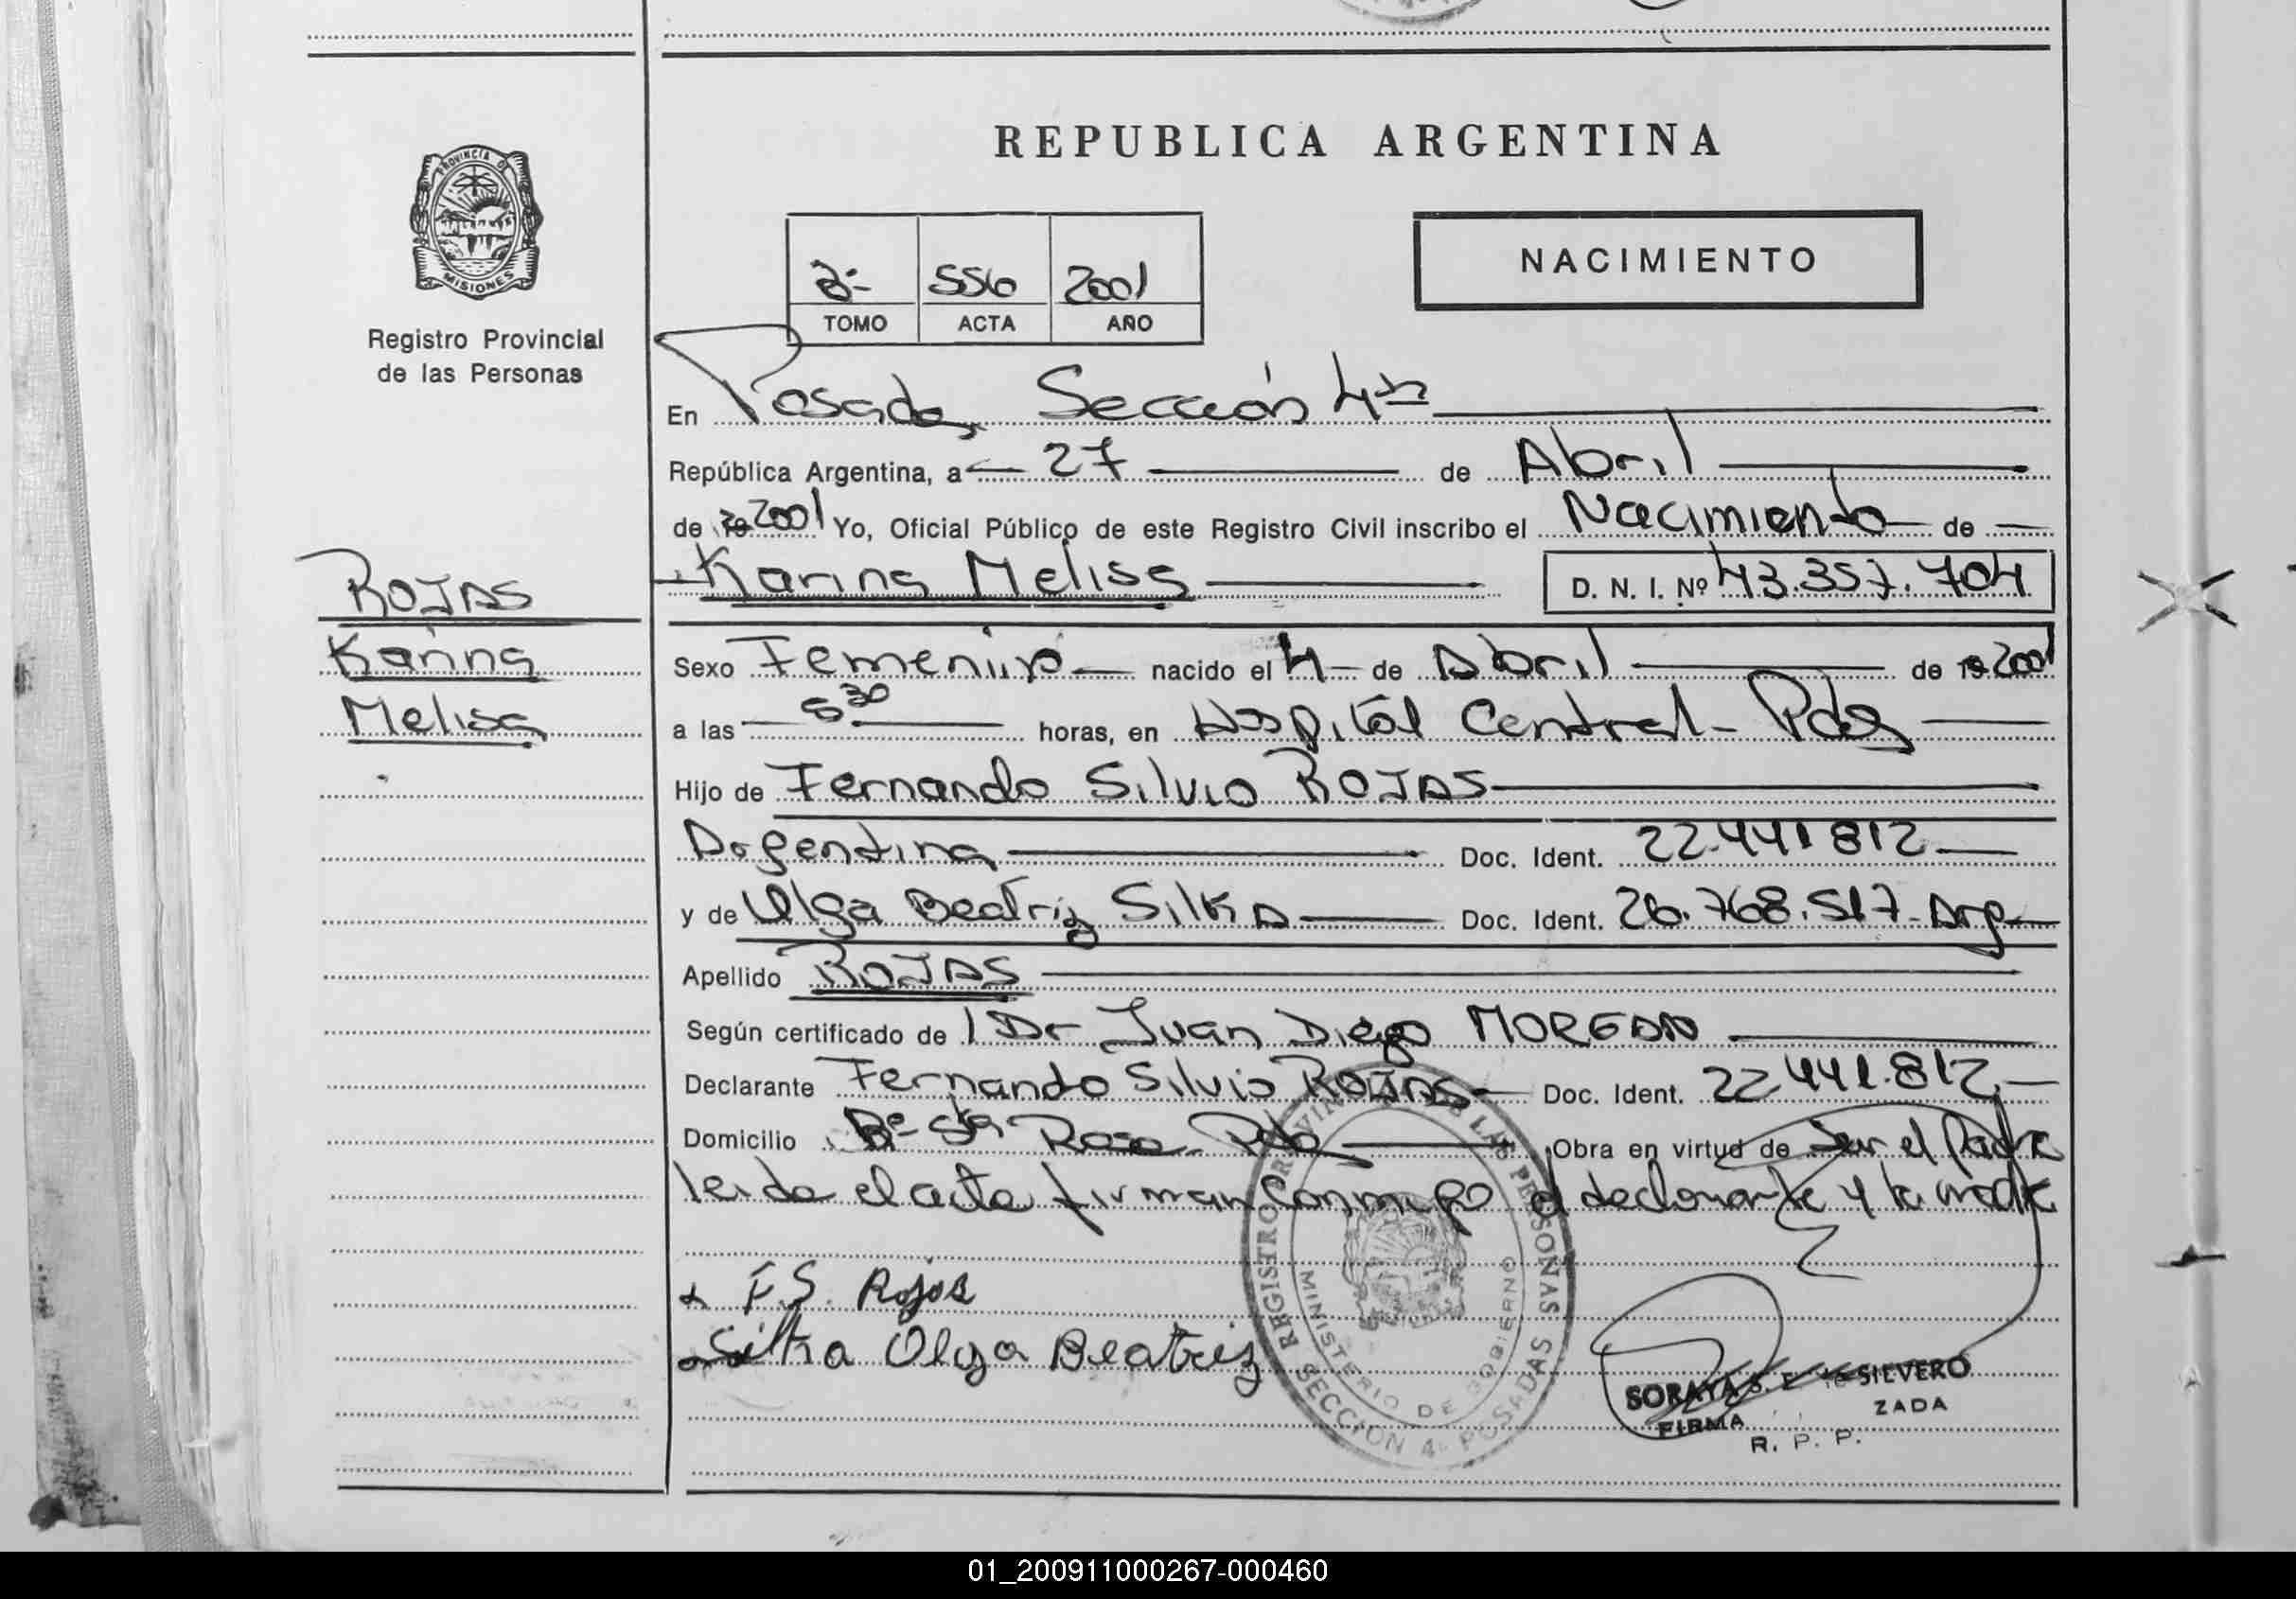 REPUBLICA ARGENTINA
PROVINCIA DE
MISIONES
Registro Provincial
de las Personas
556 2001
TOMO ACTA AÑO
NACIMIENTO
En Posadas, Sección 4ta
República Argentina, a 27 de Abril
de 19 2001 Yo, Oficial Público de este Registro Civil inscribo el Nacimiento de
Karina Melisa D. N. I. Nº 43.357.704
ROJAS
Karina
Melisa
Sexo Femenino nacido el 4 de Abril de 19 2001
a las 8 30 horas, en Hospital Central - Pdas
Hijo de Fernando Silvio ROJAS
Argentina Doc. Ident. 22.441.812
y de Olga Beatriz Silka Doc. Ident. 26.768.517 - Arg
Apellido ROJAS
Según certificado de Dr Juan Diego
Declarante Fernando Silvio ROJAS Doc. Ident. 22.441.812
Domicilio Bº Sta Rosa Obra en virtud de Ser el Padre
leida el acta firman conmigo el declarante y la madre
F.S. Rojas
Silka Olga Beatriz
REGISTRO PROVINCIAL DE LAS PERSONAS
MINISTERIO DE GOBIERNO
SECCION 4 POSADAS
SORAYA S. E. SILVERO
FIRMA ZADA
R. P. P.
01_200911000267-000460